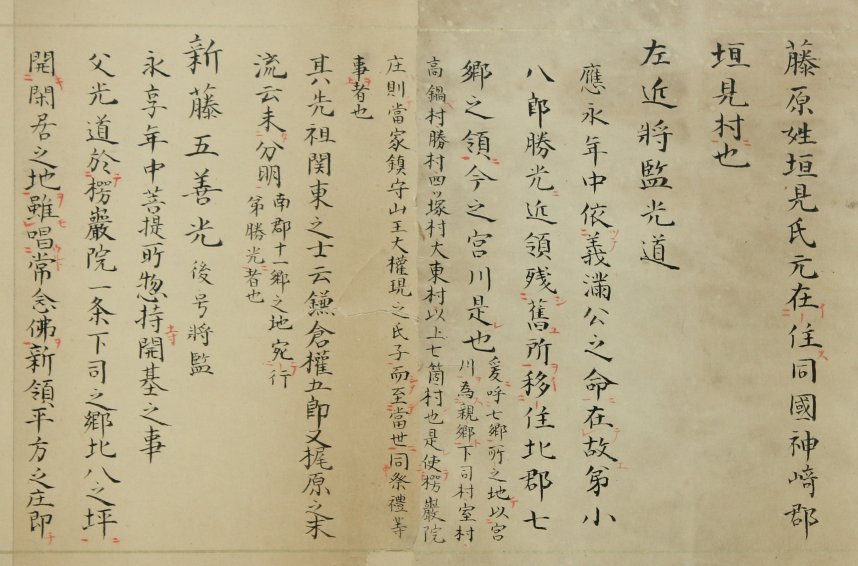 藤原姓垣見氏元在住同國神﨑郡
垣見村也
左近將監光道
應永年中依義滿公之命在故弟小
八郎勝光近領残舊所移住北郡七
郷之領今之宮川是也
爰呼七郷所之地以宮
川為親郷下司村室村
高鍋村勝村四ツ塚村大東村以上七箇村也是使楞嚴院
庄則當家鎮守山王大權現之氏子而至當世同祭禮等
事者也
其先祖関東之士云鎌倉權五郎又梶原之末
流云未分明
南郡十一郷之地宛行
弟勝光者也
新藤五善光
後号將監
永享年中菩提所惣持開基之事
父光道於楞嚴院一条下司之郷北八之坪
開閑居之地雖唱常念佛新領平方之庄即